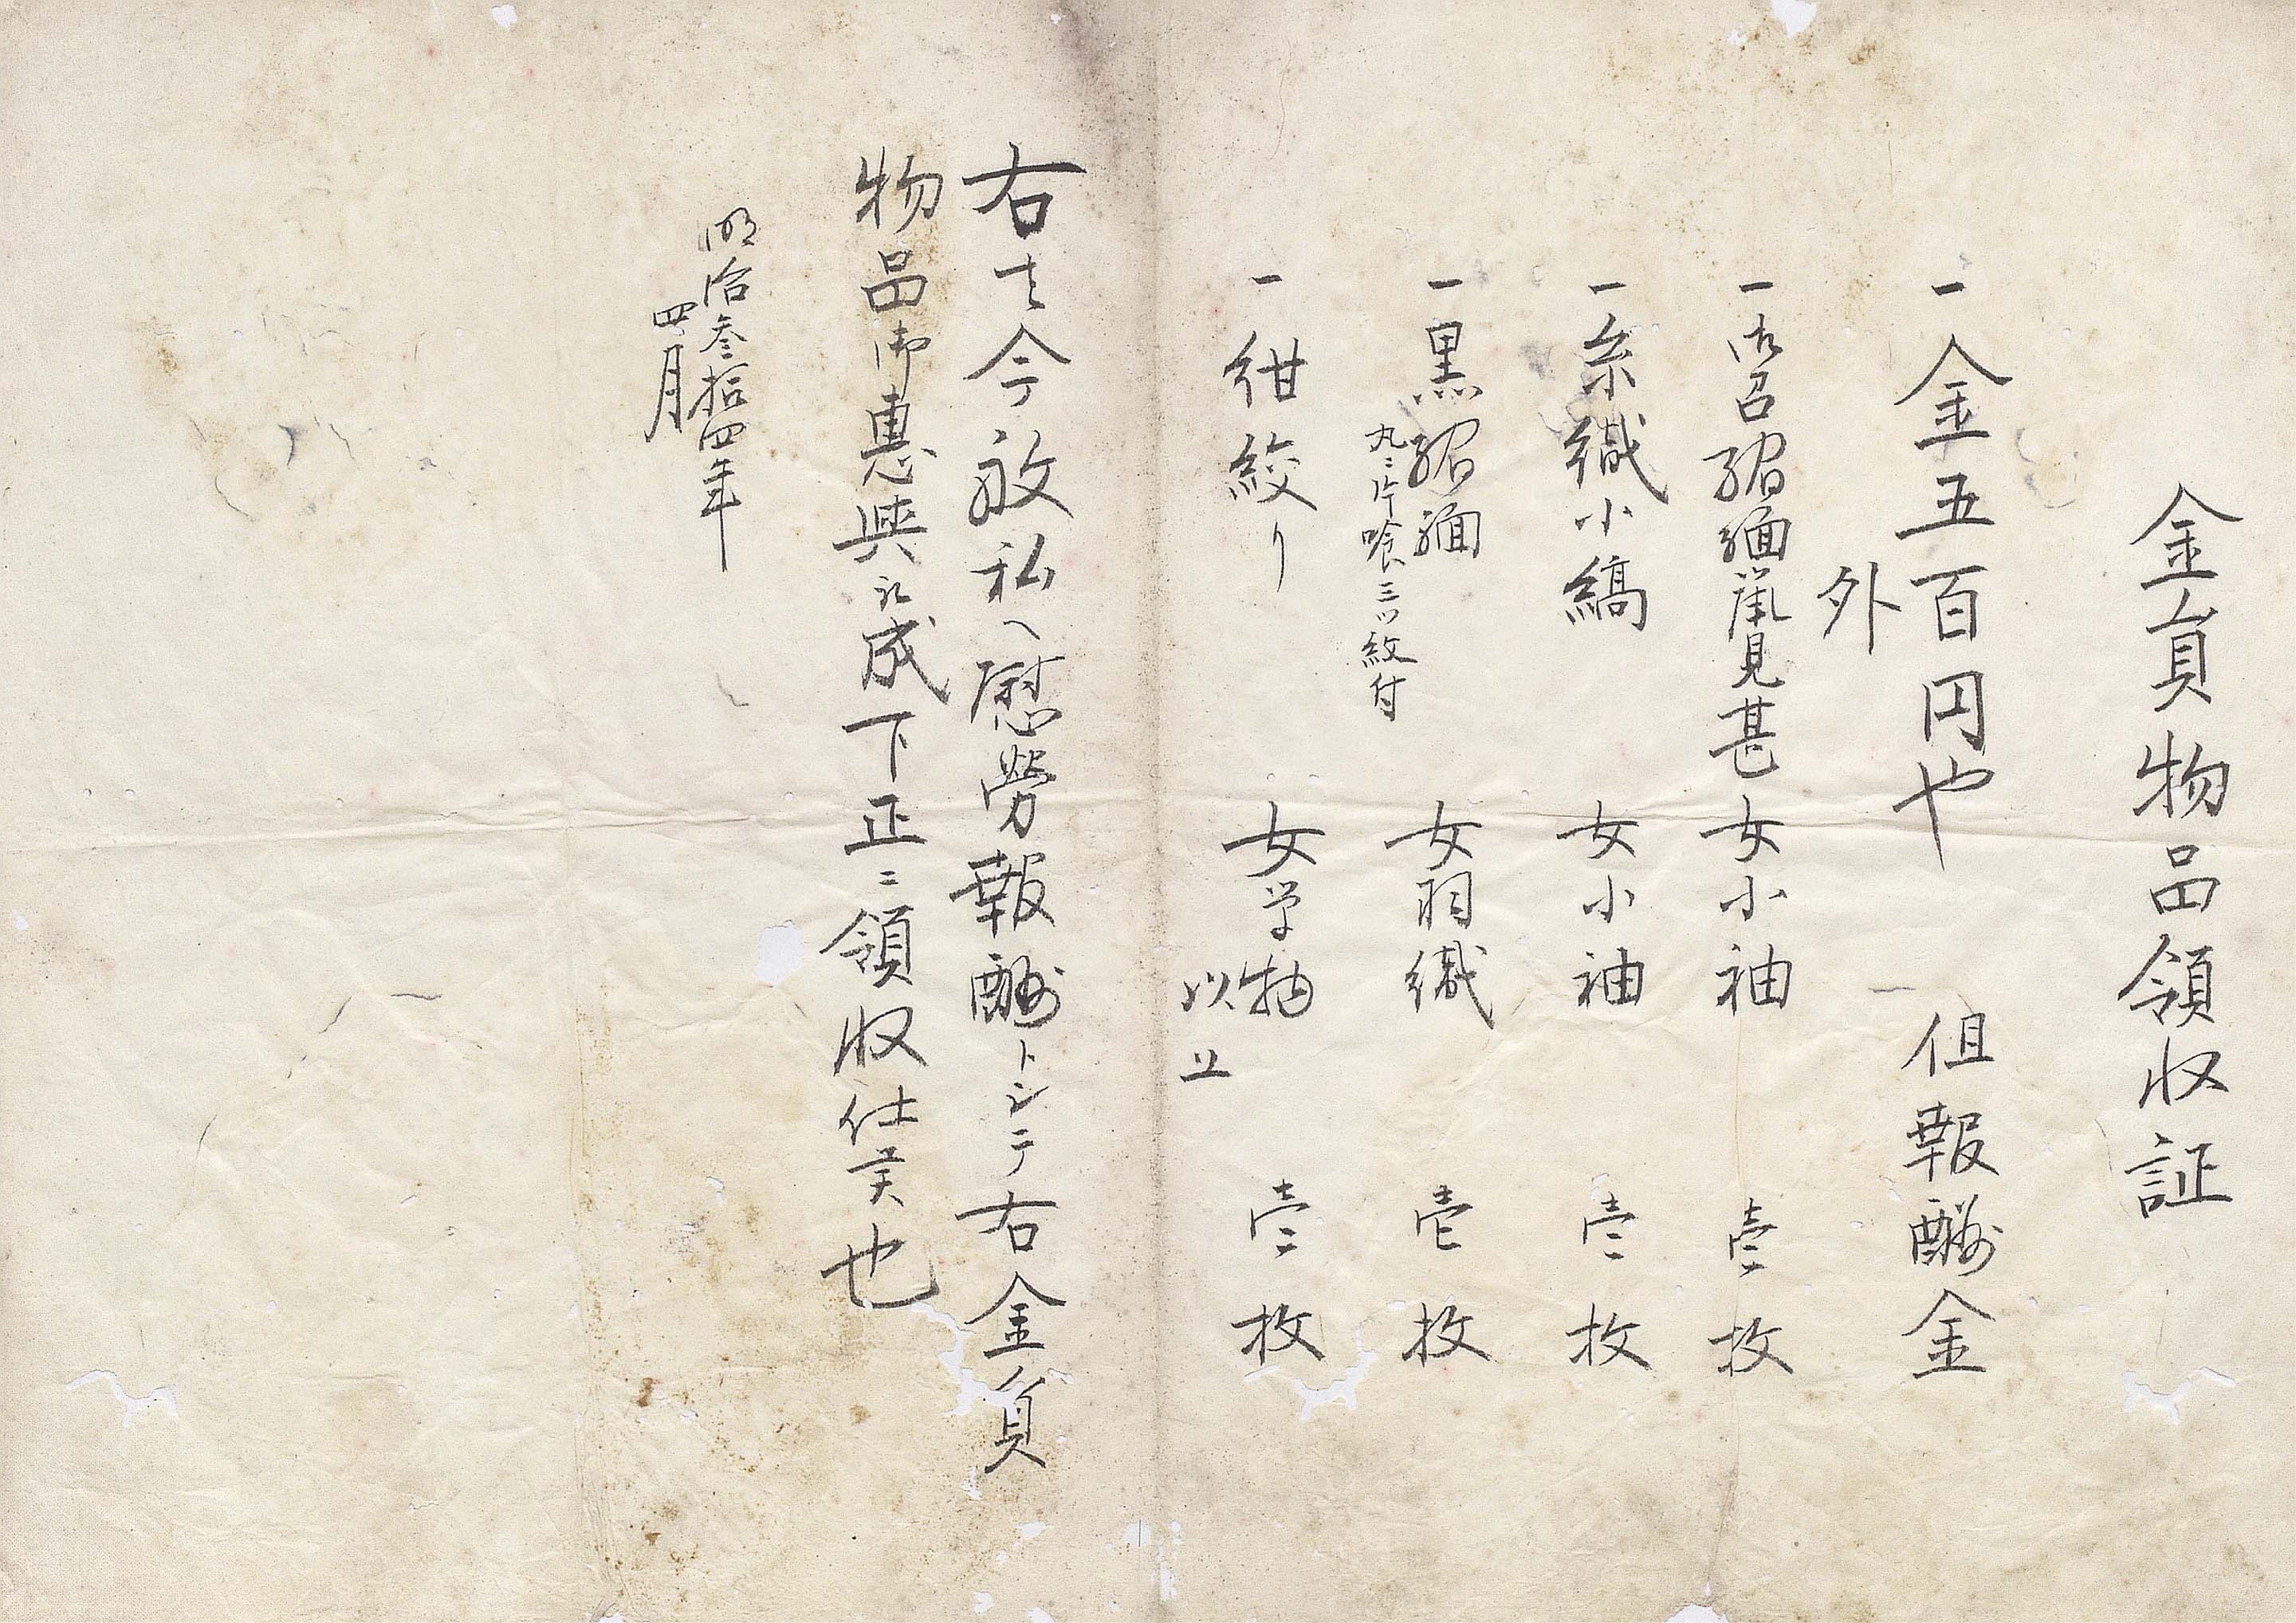 金員物品領収証
一金五百円也 但報酬金
外
一御召縮緬 女小袖 壱枚
一糸織小縞 女小袖 壱枚
一黒縮緬 女羽織 壱枚
丸ニ片喰三ツ紋付
一紺絞り 女単物 壱枚
以上
右ハ今般私ヘ慰労報酬トシテ右金員
物品御恵與被成下正ニ領収仕候也
明治参拾四年
四月